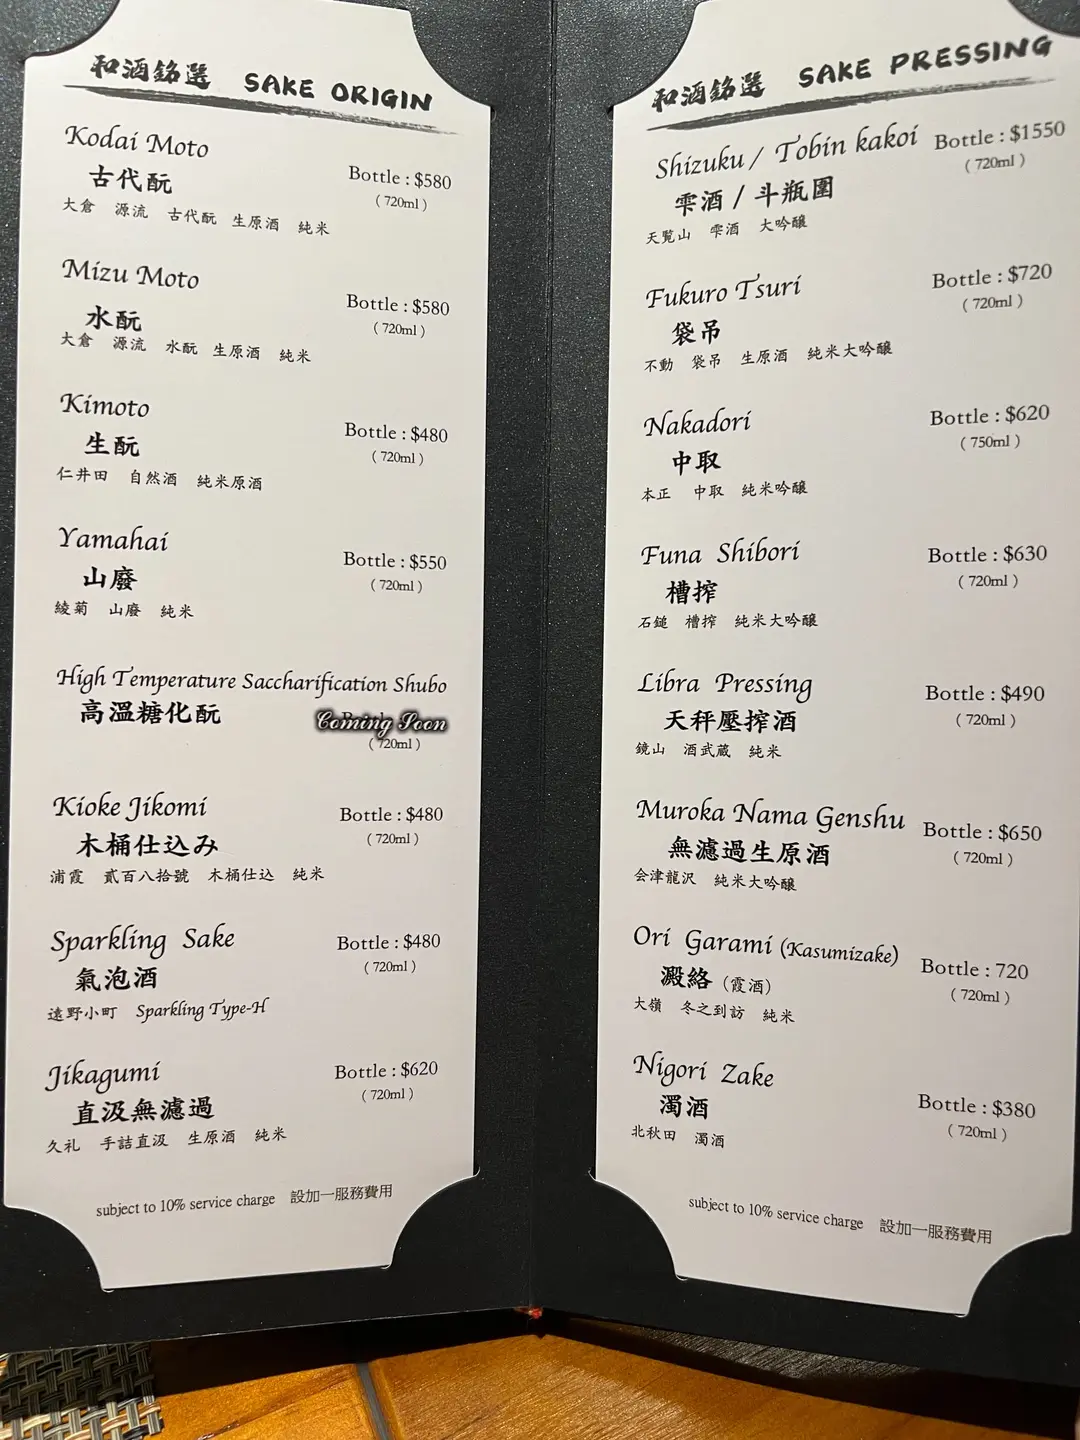 和酒銘選 SAKE ORIGIN
Kodai Moto
古代酛
Bottle : $580
( 720ml )
大倉 源流 古代酛 生原酒 純米
Mizu Moto
水酛
Bottle : $580
( 720ml )
大倉 源流 水酛 生原酒 純米
Kimoto
生酛
Bottle : $480
( 720ml )
仁井田 自然酒 純米原酒
Yamahai
山廢
Bottle : $550
( 720ml )
綾菊 山廢 純米
High Temperature Saccharification Shubo
高溫糖化酛
Coming Soon
( 720ml )
Kioke Jikomi
木桶仕込み
Bottle : $480
( 720ml )
浦霞 貳百八拾號 木桶仕込 純米
Sparkling Sake
氣泡酒
Bottle : $480
( 720ml )
遠野小町 Sparkling Type-H
Jikagumi
直汲無濾過
Bottle : $620
( 720ml )
久礼 手詰直汲 生原酒 純米
subject to 10% service charge 設加一服務費用
和酒銘選 SAKE PRESSING
Shizuku / Tobin kakoi
雫酒 / 斗瓶圍
Bottle : $1550
( 720ml )
天覧山 雫酒 大吟醸
Fukuro Tsuri
袋吊
Bottle : $720
( 720ml )
不動 袋吊 生原酒 純米大吟醸
Nakadori
中取
Bottle : $620
( 750ml )
本正 中取 純米吟醸
Funa Shibori
槽搾
Bottle : $630
( 720ml )
石鎚 槽搾 純米大吟醸
Libra Pressing
天秤壓搾酒
Bottle : $490
( 720ml )
鏡山 酒武蔵 純米
Muroka Nama Genshu
無濾過生原酒
Bottle : $650
( 720ml )
会津龍沢 純米大吟醸
Ori Garami (Kasumizake)
澱絡 (霞酒)
Bottle : 720
( 720ml )
大嶺 冬之到訪 純米
Nigori Zake
濁酒
Bottle : $380
( 720ml )
北秋田 濁酒
subject to 10% service charge 設加一服務費用